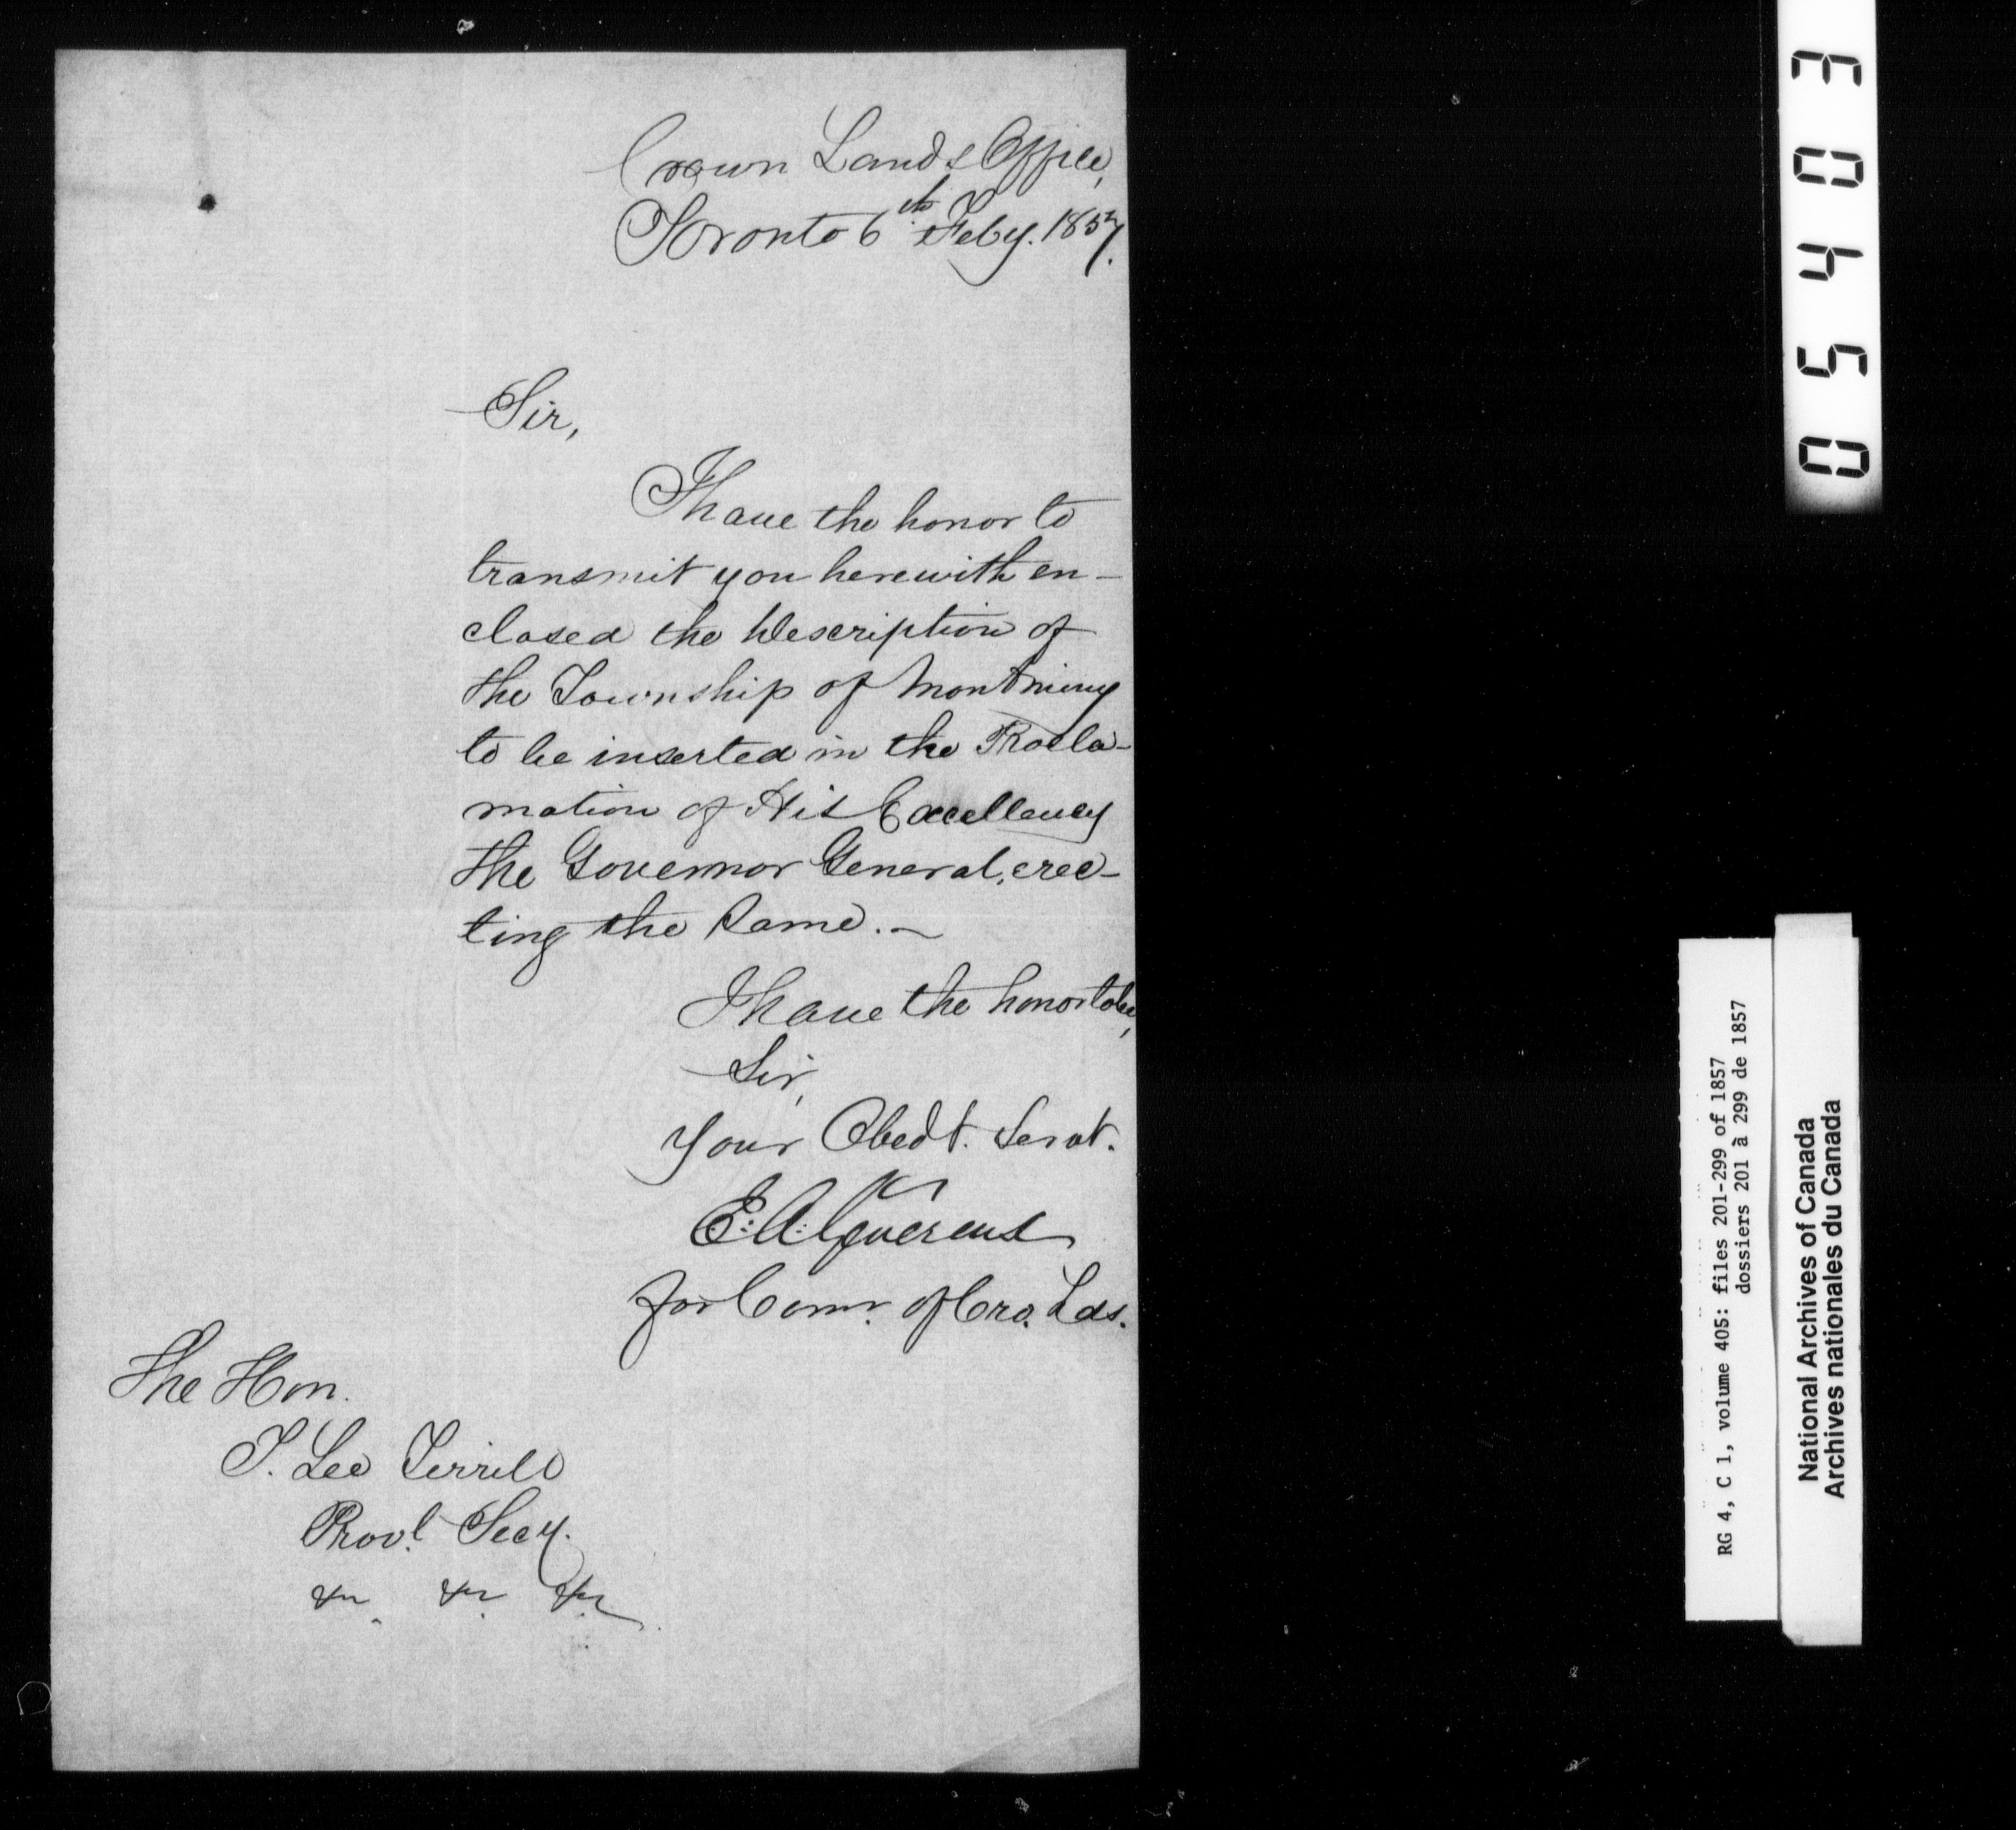 Crown Lands Office,
Toronto 6th Feby. 1857.
Sir,
I have the honor to
transmit you herewith en-
closed the Description of
the Township of Montminy
to be inserted in the Procla-
mation of His Excellency
the Governor General, erec-
ting the same.—
I have the honor to be,
Sir,
Your Obedt. Servt.
E: A: Généreux
for Comr. of Cro. Lds.
The Hon.
T. Lee Terrill
Provl. Secy.
&c. &c. &c.
05403
RG 4, C 1, volume 405: files 201-299 of 1857
dossiers 201 à 299 de 1857
National Archives of Canada
Archives nationales du Canada